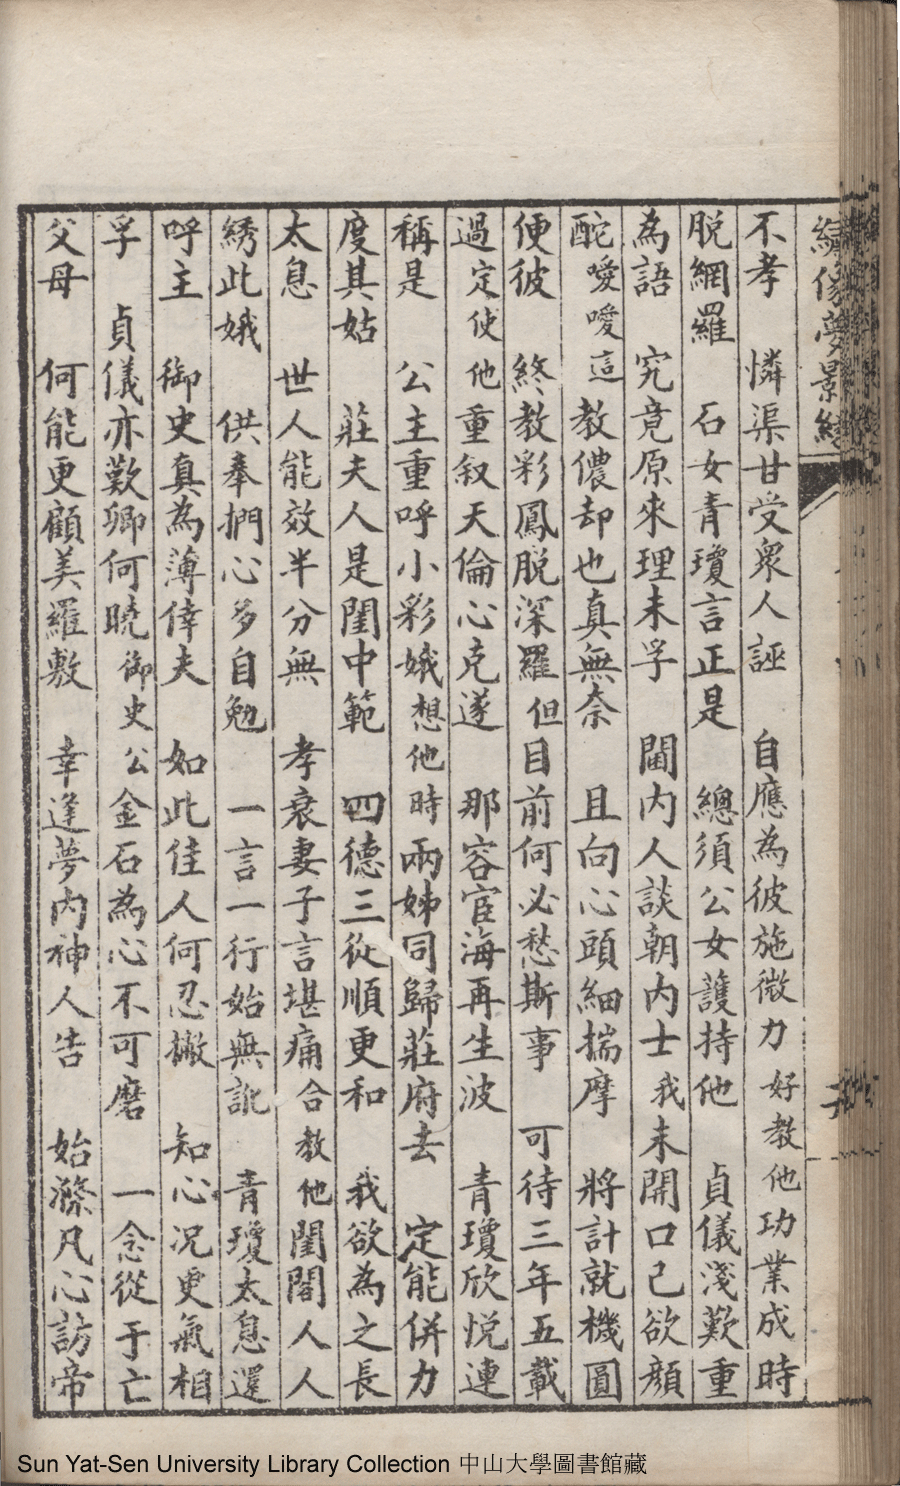 繡像夢影緣
不孝　憐渠甘受衆人誣　自應為彼施微力好教他功業成時
脫網羅　石女青瓊言正是　總須公女護持他　貞儀淺歎重
為語　究竟原來理未孚　閫内人談朝内士我未開口已欲顏
酡噯噯這教儂却也真無奈　且向心頭細揣摩　將計就機圖
便彼　終教彩鳳脫深羅但目前何必愁斯事　可待三年五載
過定使他重叙天倫心克遂　那容宦海再生波　青瓊欣悦連
稱是　公主重呼小彩娥想他時兩姊同歸莊府去　定能併力
度其姑　莊夫人是閨中範　四德三從順更和　我欲為之長
太息　世人能效半分無　孝衰妻子言堪痛合教他閨閣人人
綉此娥　供奉捫心多自勉　一言一行始無訛　青瓊太息還
呼主　御史真為薄倖夫　如此佳人何忍撇　知心况更氣相
孚　貞儀亦歎卿何曉御史公金石為心不可磨　一念從于亡
父母　何能更顧美羅敷　幸逢夢内神人告　始滌凡心訪帝
Sun Yat-Sen University Library Collection 中山大學圖書館藏